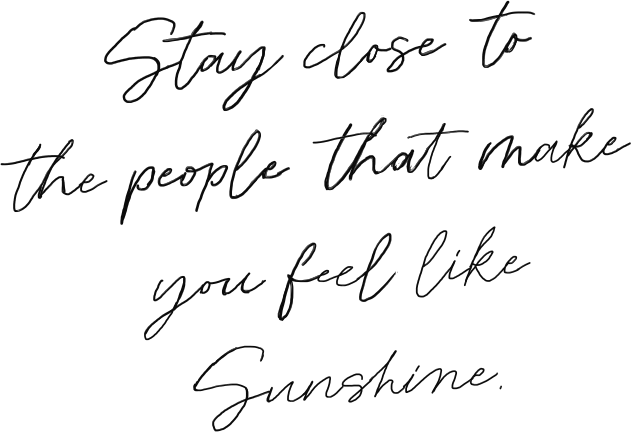 Stay close to
the people that make
you feel like
Sunshine.